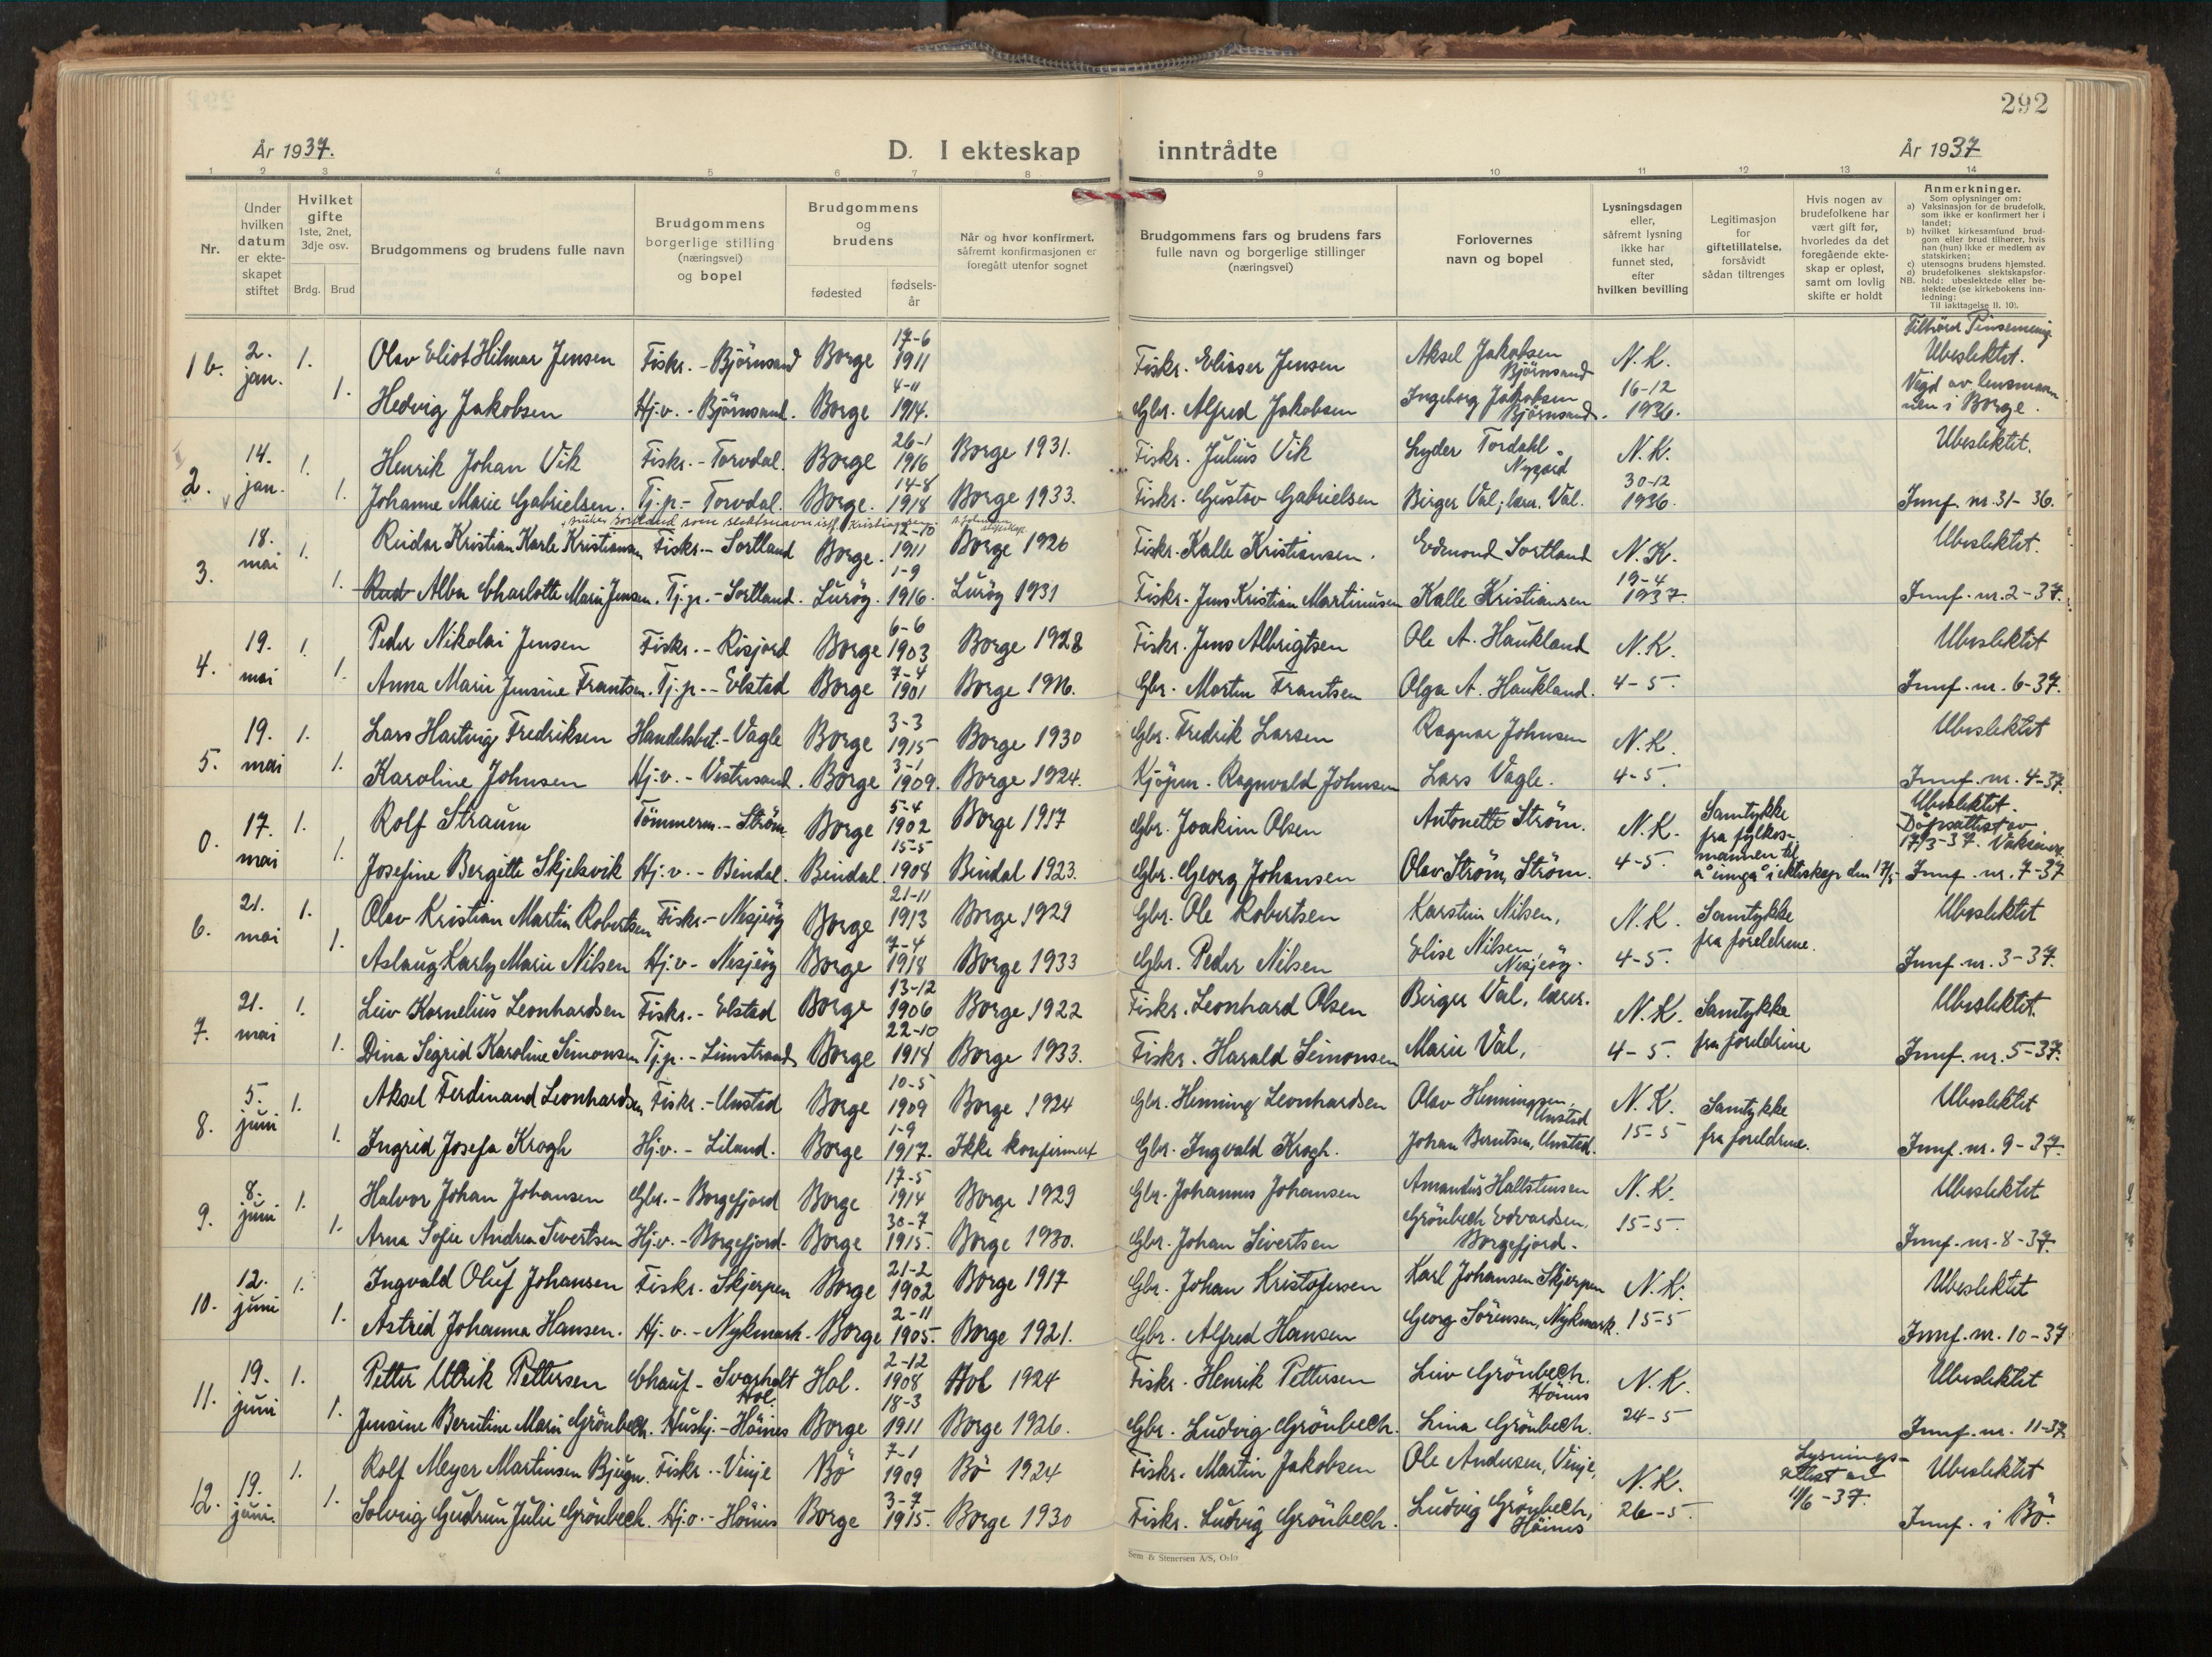 292
År 1937.
D. I ekteskap inntrådte
År 1937
1 2 3 4 5 6 7 8 9 10 11 12 13 14
Nr.
Under
hvilken
datum
er ekte-
skapet
stiftet
Hvilket
gifte
1ste, 2net,
3dje osv.
Brdg. Brud
Brudgommens og brudens fulle navn
Brudgommens
borgerlige stilling
(næringsvei)
og bopel
Brudgommens
og
brudens
fødested
fødsels-
år
Når og hvor konfirmert,
såfremt konfirmasjonen er
foregått utenfor sognet
Brudgommens fars og brudens fars
fulle navn og borgerlige stillinger
(næringsvei)
Forlovernes
navn og bopel
Lysningsdagen
eller,
såfremt lysning
ikke har
funnet sted,
efter
hvilken bevilling
Legitimasjon
for
giftetillatelse,
forsåvidt
sådan tiltrenges
Hvis nogen av
brudefolkene har
vært gift før,
hvorledes da det
foregående ekte-
skap er opløst,
samt om lovlig
skifte er holdt
Anmerkninger.
Som oplysninger om:
a) Vaksinasjon for de brudefolk,
som ikke er konfirmert her i
landet;
b) hvilket kirkesamfund brud-
gom eller brud tilhører, hvis
han (hun) ikke er medlem av
statskirken;
c) utensogns brudens hjemsted.
d) brudefolkenes slektskapsfor-
NB. hold: ubeslektede eller be-
slektede (se kirkebokens inn-
ledning:
Til iakttagelse II. 10).
1 b. 2. jan. 1. Olav Eliot Hilmar Jensen Fiskr. - Björnsand Borge 17-6 1911 Fiskr. Elisser Jensen Aksel Jakobsen Björnsand N.K. Tilhörer Pinsemenig. Ubeslektet.
1. Hedvig Jakobsen Hj.v. - Björnsand. Borge 4-11 1914. Gbr. Alfred Jakobsen Ingeborg Jakobsen Björnsand. 16-12 1936. Vigd av lensman nen i Borge.
2. 14. jan. 1. Henrik Johan Vik Fiskr. - Torvdal. Borge 26-1 1916 Borge 1931. Fiskr. Julius Vik Lyder Tordahl. Nygård N.K. Ubeslektet.
1. Johanne Marie Gabrielsen. Tj.p. - Torvdal. Borge. 14-8 1918 Borge 1933. Fiskr. Gustav Gabrielsen Birger Val, lær. Val. 30-12 1936. Innf. nr. 31-36.
bruker Sortland som slektsnavn istf. Kristiansen
3. 18. mai 1. Reidar Kristian Karle Kristiansen Fiskr. - Sortland Borge. 12-10 1911 Borge 1926 Fiskr. Kalle Kristiansen. Edmond Sortland N.K. Ubeslektet.
1. Alba Charlotte Marie Jensen. Tj.p. - Sortland. Luröy. 1-9 1916. Luröy 1931 Fiskr. Jens Kristian Martinusen Kalle Kristiansen 19-4 1937. Innf. nr. 2-37.
4. 19. mai 1. Peder Nikolai Jensen Fiskr. - Risjord Borge 6-6 1903 Borge 1928 Fiskr. Jens Albrigtsen Ole A. Haukland N.K. Ubeslektet
1. Anna Marie Jensine Frantsen. Tj.p. - Elstad Borge 7-4 1901 Borge Gbr. Martin Frantsen Olga A. Haukland. 4-5. Innf. nr. 6-37.
5. 19. mai 1. Lars Hartvig Fredriksen Handelsbet. - Vagle Borge 3-3 1915 Borge 1930 Gbr. Fredrik Larsen Ragnar Johnsen N.K. Ubeslektet
1. Karoline Johnsen Hj.v. - Vestresand. Borge 3-1 1909. Borge 1924. Kjöpm. Ragnvald Johnsen Lars Vagle. 4-5. Innf. nr. 4-37.
0. 17. mai 1. Rolf Straum Tömmerm. - Ström Borge 5-4 1902 Borge 1917 Gbr. Joakim Olsen Antonette Ström. N.K. Samtykke fra fylkes- mannen til Ubeslektet. Dåpsattest av 17/3-37. Vaksinert
1. Josefine Bergitte Skjelsvik Hj.v. - Bindal. Bindal 15-5 1908 Bindal 1923. Gbr. Georg Johansen Olav Ström, Ström. 4-5. å inngå i ekteskap den 17/5. Innf. nr. 7-37
6. 21. mai 1. Olav Kristian Martin Robertsen Fiskr. - Nesjeöy Borge 21-11 1913 Borge 1929 Gbr. Ole Robertsen Karstein Nilsen, N.K. Samtykke fra foreldrene. Ubeslektet
1. Aslaug Karly Marie Nilsen Hj.v. - Nesjeöy Borge 7-4 1918 Borge 1933 Gbr. Peder Nilsen Elise Nilsen Nesjeöy. 4-5. Innf. nr. 3-37.
7. 21. mai 1. Leiv Kornelius Leonhardsen Fiskr. - Elstad Borge 13-12 1906 Borge 1922 Fiskr. Leonhard Olsen Birger Val, lærer. N.K. Samtykke Ubeslektet.
1. Dina Sigrid Karoline Simonsen Tj.p. - Limstrand Borge 22-10 1918 Borge 1933. Fiskr. Harald Simonsen Marie Val, 4-5. fra foreldrene Innf. nr. 5-37.
8. 5. juni 1. Aksel Ferdinand Leonhardsen Fiskr. - Unstad Borge 10-5 1909 Borge 1924 Gbr. Henning Leonhardsen Olav Henningsen, Unstad N.K. Samtykke Ubeslektet
1. Ingrid Josefa Krogh Hj.v. - Liland. Borge 1-9 1917. Ikke konfirmert Gbr. Ingvald Krogh. Johan Berntsen, Unstad. 15-5 fra foreldrene. Innf. nr. 9-37.
9. 8. juni 1. Halvor Johan Johansen Gbr. - Borgefjord Borge 17-5 1914 Borge 1929 Gbr. Johannes Johansen Amandus Hallsteinsen N.K. Ubeslektet
1. Arna Sofie Andrea Sivertsen Hj.v. - Borgefjord. Borge 30-7 1915. Borge 1930. Gbr. Johan Sivertsen Grönbech Edvardsen, Borgefjord. 15-5 Innf. nr. 8-37.
10. 12. juni 1. Ingvald Oluf Johansen Fiskr. Skjerpen Borge 21-2 1902 Borge 1917 Gbr. Johan Kristofersen Karl Johansen Skjerpen N.K. Ubeslektet
1. Astrid Johanna Hansen. Hj.v. - Nykmark. Borge 2-11 1905. Borge 1921. Gbr. Alfred Hansen Georg Sörensen, Nykmark. 15-5 Innf. nr. 10-37
11. 19. juni 1. Petter Ulrik Pettersen Chauf. - Svarholt Hol. Hol. 2-12 1908 Hol 1924 Fiskr. Henrik Pettersen Leiv Grönbech. Höines N.K. Ubeslektet
1. Jensine Berntine Marie Grönbech. Hushj. - Höines Borge 18-3 1911 Borge 1926. Gbr. Ludvig Grönbech. Lina Grönbech. 24-5 Innf. nr. 11-37
12. 19. juni. 1. Rolf Meyer Martinsen Bjugn. Fiskr. - Vinje Bö 7-1 1909 Bö 1924 Fiskr. Martin Jakobsen Ole Andersen, Vinje, N.K. Lysnings- attest av 11/6-37. Ubeslektet
1. Solveig Gudrun Julie Grönbech. Hj.v. - Höines Borge 3-7 1915. Borge 1930 Fiskr. Ludvig Grönbech. Ludvig Grönbech, Höines 26-5. Innf. i Bö.
Sem & Stenersen A/S, Oslo